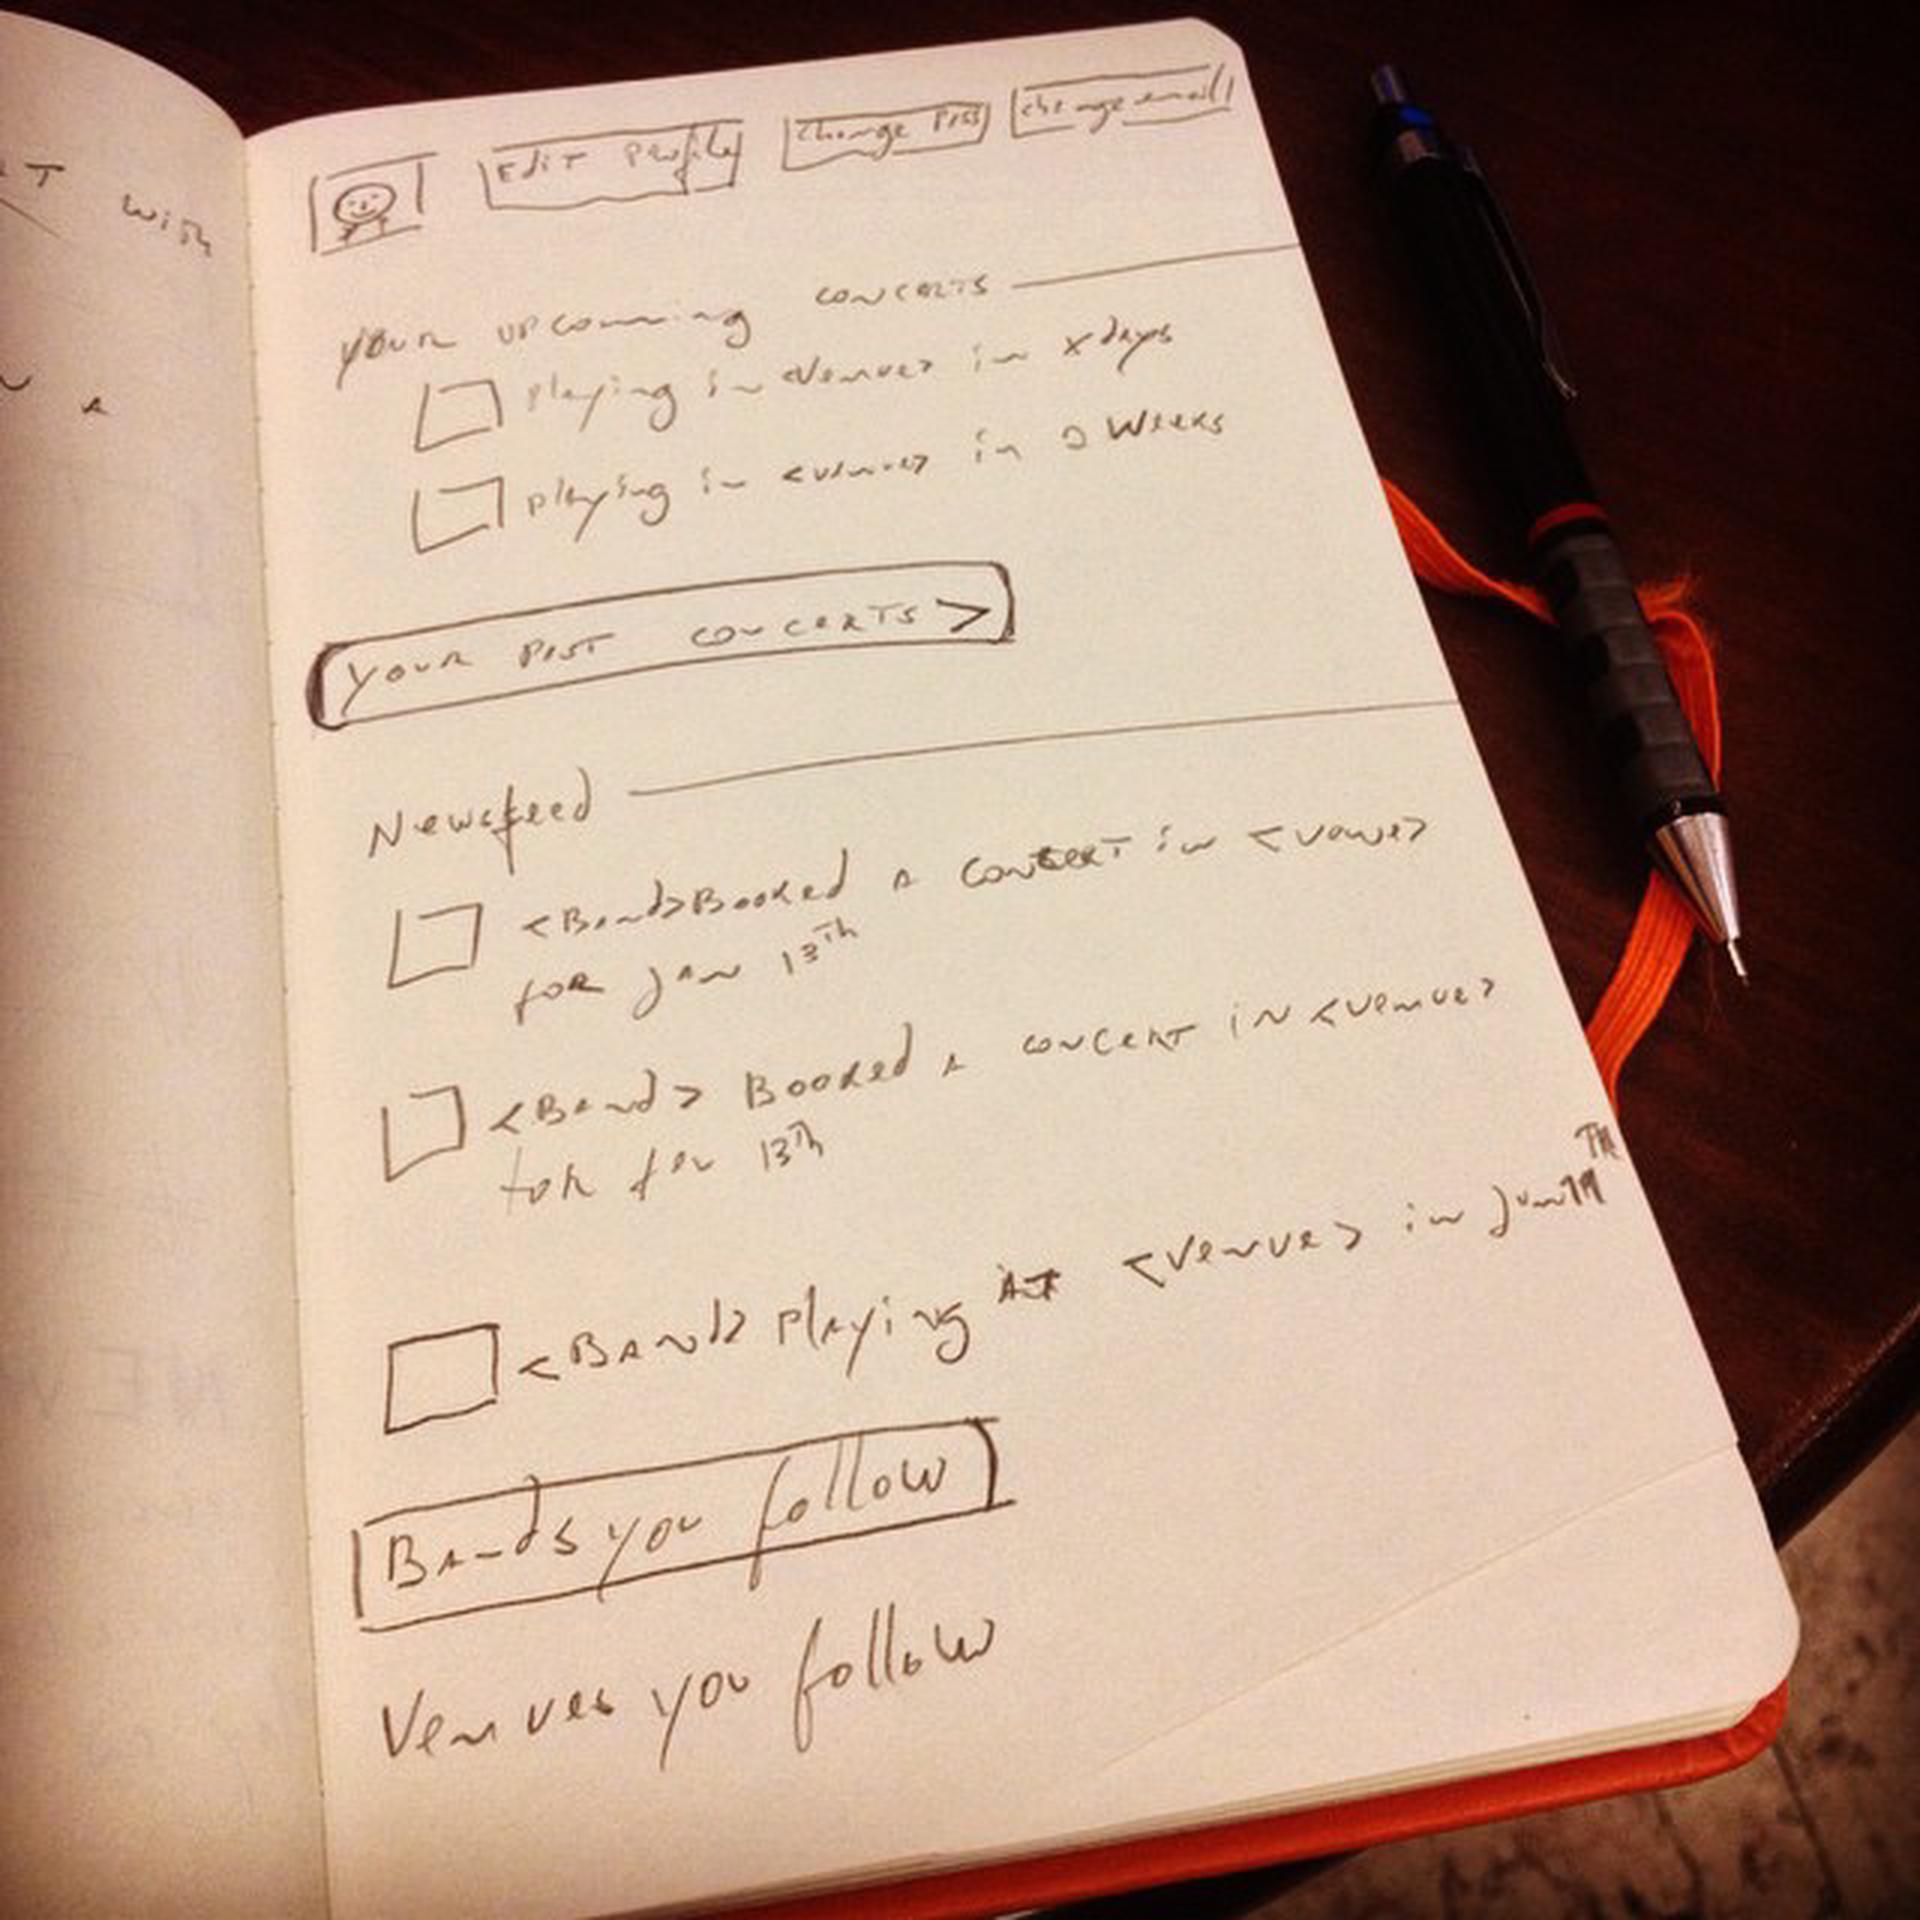 with
Edit Profile Change Pass Change email
Your upcoming concerts
playing in <venue> in x days
playing in <venue> in 2 Weeks
Your past concerts >
Newsfeed
<Band> Booked a concert in <venue>
for Jan 13th
<Band> Booked a concert in <venue>
for fev 13th
<Band> playing at <venue> in Jun
Bands you follow
Venues you follow